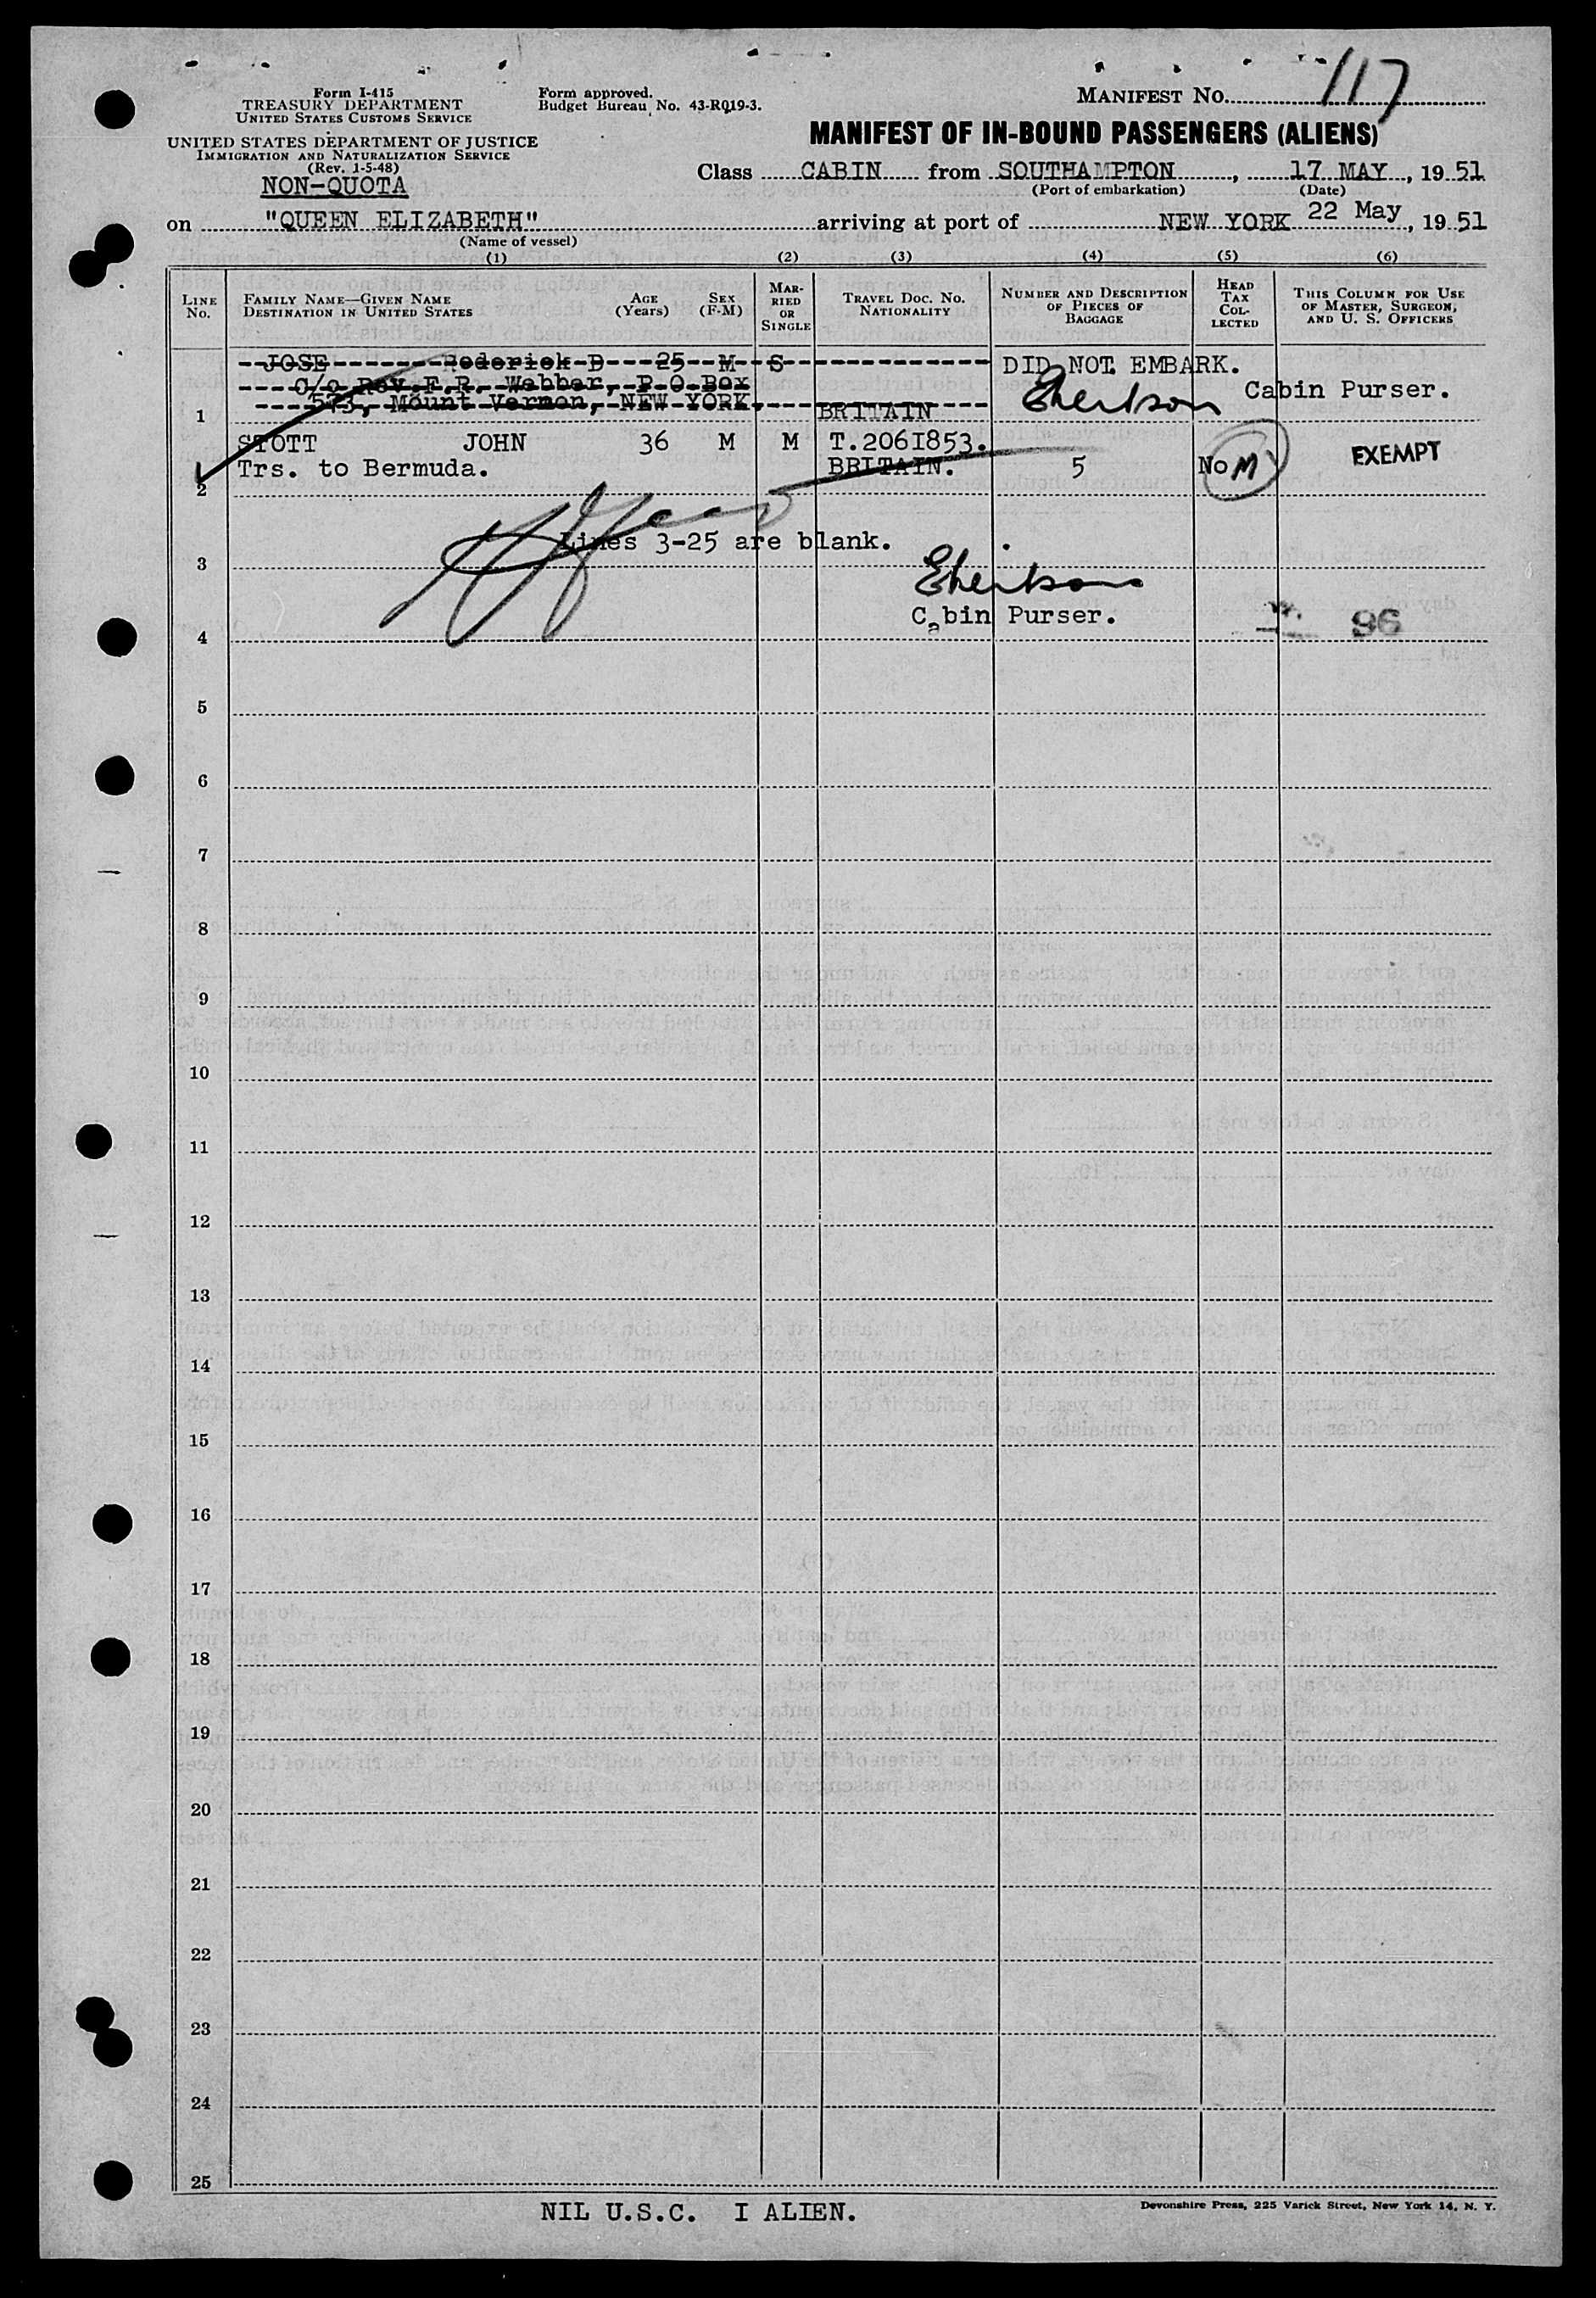 Form I-415
TREASURY DEPARTMENT
UNITED STATES CUSTOMS SERVICE
UNITED STATES DEPARTMENT OF JUSTICE
IMMIGRATION AND NATURALIZATION SERVICE
(Rev. 1-5-48)
NON-QUOTA
Form approved.
Budget Bureau No. 43-R019-3.
MANIFEST NO. 117
MANIFEST OF IN-BOUND PASSENGERS (ALIENS)
Class CABIN from SOUTHAMPTON, 17 MAY, 1951
(Port of embarkation) (Date)
on "QUEEN ELIZABETH" arriving at port of NEW YORK 22 May, 1951
(Name of vessel)
(1) (2) (3) (4) (5) (6)
LINE No.
FAMILY NAME—GIVEN NAME
DESTINATION IN UNITED STATES
AGE (Years)
SEX (F-M)
MARRIED OR SINGLE
TRAVEL DOC. NO.
NATIONALITY
NUMBER AND DESCRIPTION OF PIECES OF BAGGAGE
HEAD TAX COLLECTED
THIS COLUMN FOR USE OF MASTER, SURGEON, AND U. S. OFFICERS
JOSE Roderick D 25 M S DID NOT EMBARK.
C/o Rev. F.R. Webber, P O Box
573, Mount Vernon, NEW YORK. Cabin Purser.
1 BRITAIN
STOTT JOHN 36 M M T.2061853. EXEMPT
Trs. to Bermuda. BRITAIN. 5 No M
2
Lines 3-25 are blank.
3
Cabin Purser.
96
4
5
6
7
8
9
10
11
12
13
14
15
16
17
18
19
20
21
22
23
24
25
NIL U.S.C. I ALIEN.
Devonshire Press, 225 Varick Street, New York 14, N. Y.